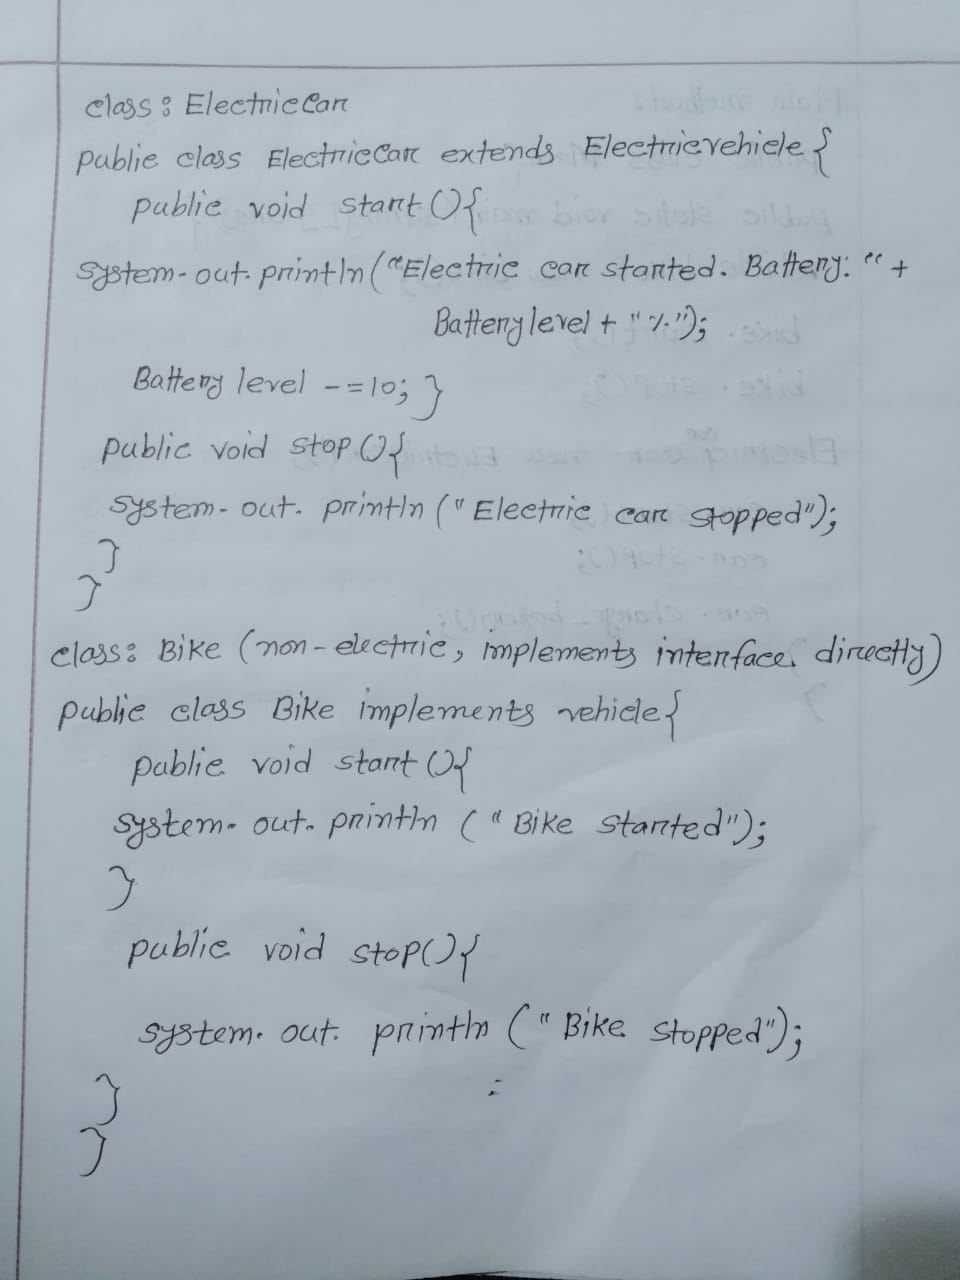 class: ElectricCar
public class ElectricCar extends Electricvehicle {
public void start () {
System.out.println ("Electric car started. Battery: " +
Battery level + "%");
Battery level -=10; }
public void stop () {
System.out.println ("Electric car stopped");
}
}
class: Bike (non-electric, implements interface directly)
public class Bike implements vehicle {
public void start () {
system.out.println ("Bike started");
}
public void stop() {
system.out.println ("Bike stopped");
}
}